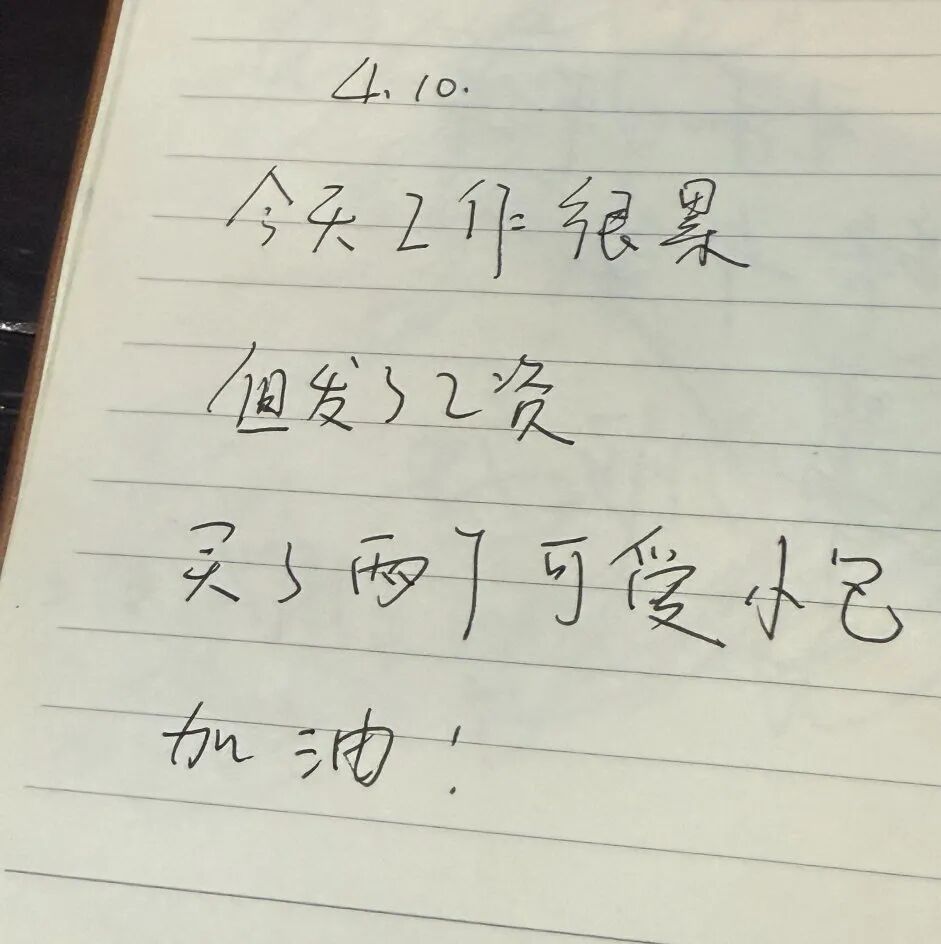 4.10.
今天工作很累
但发了工资
买了两个可爱小包
加油！